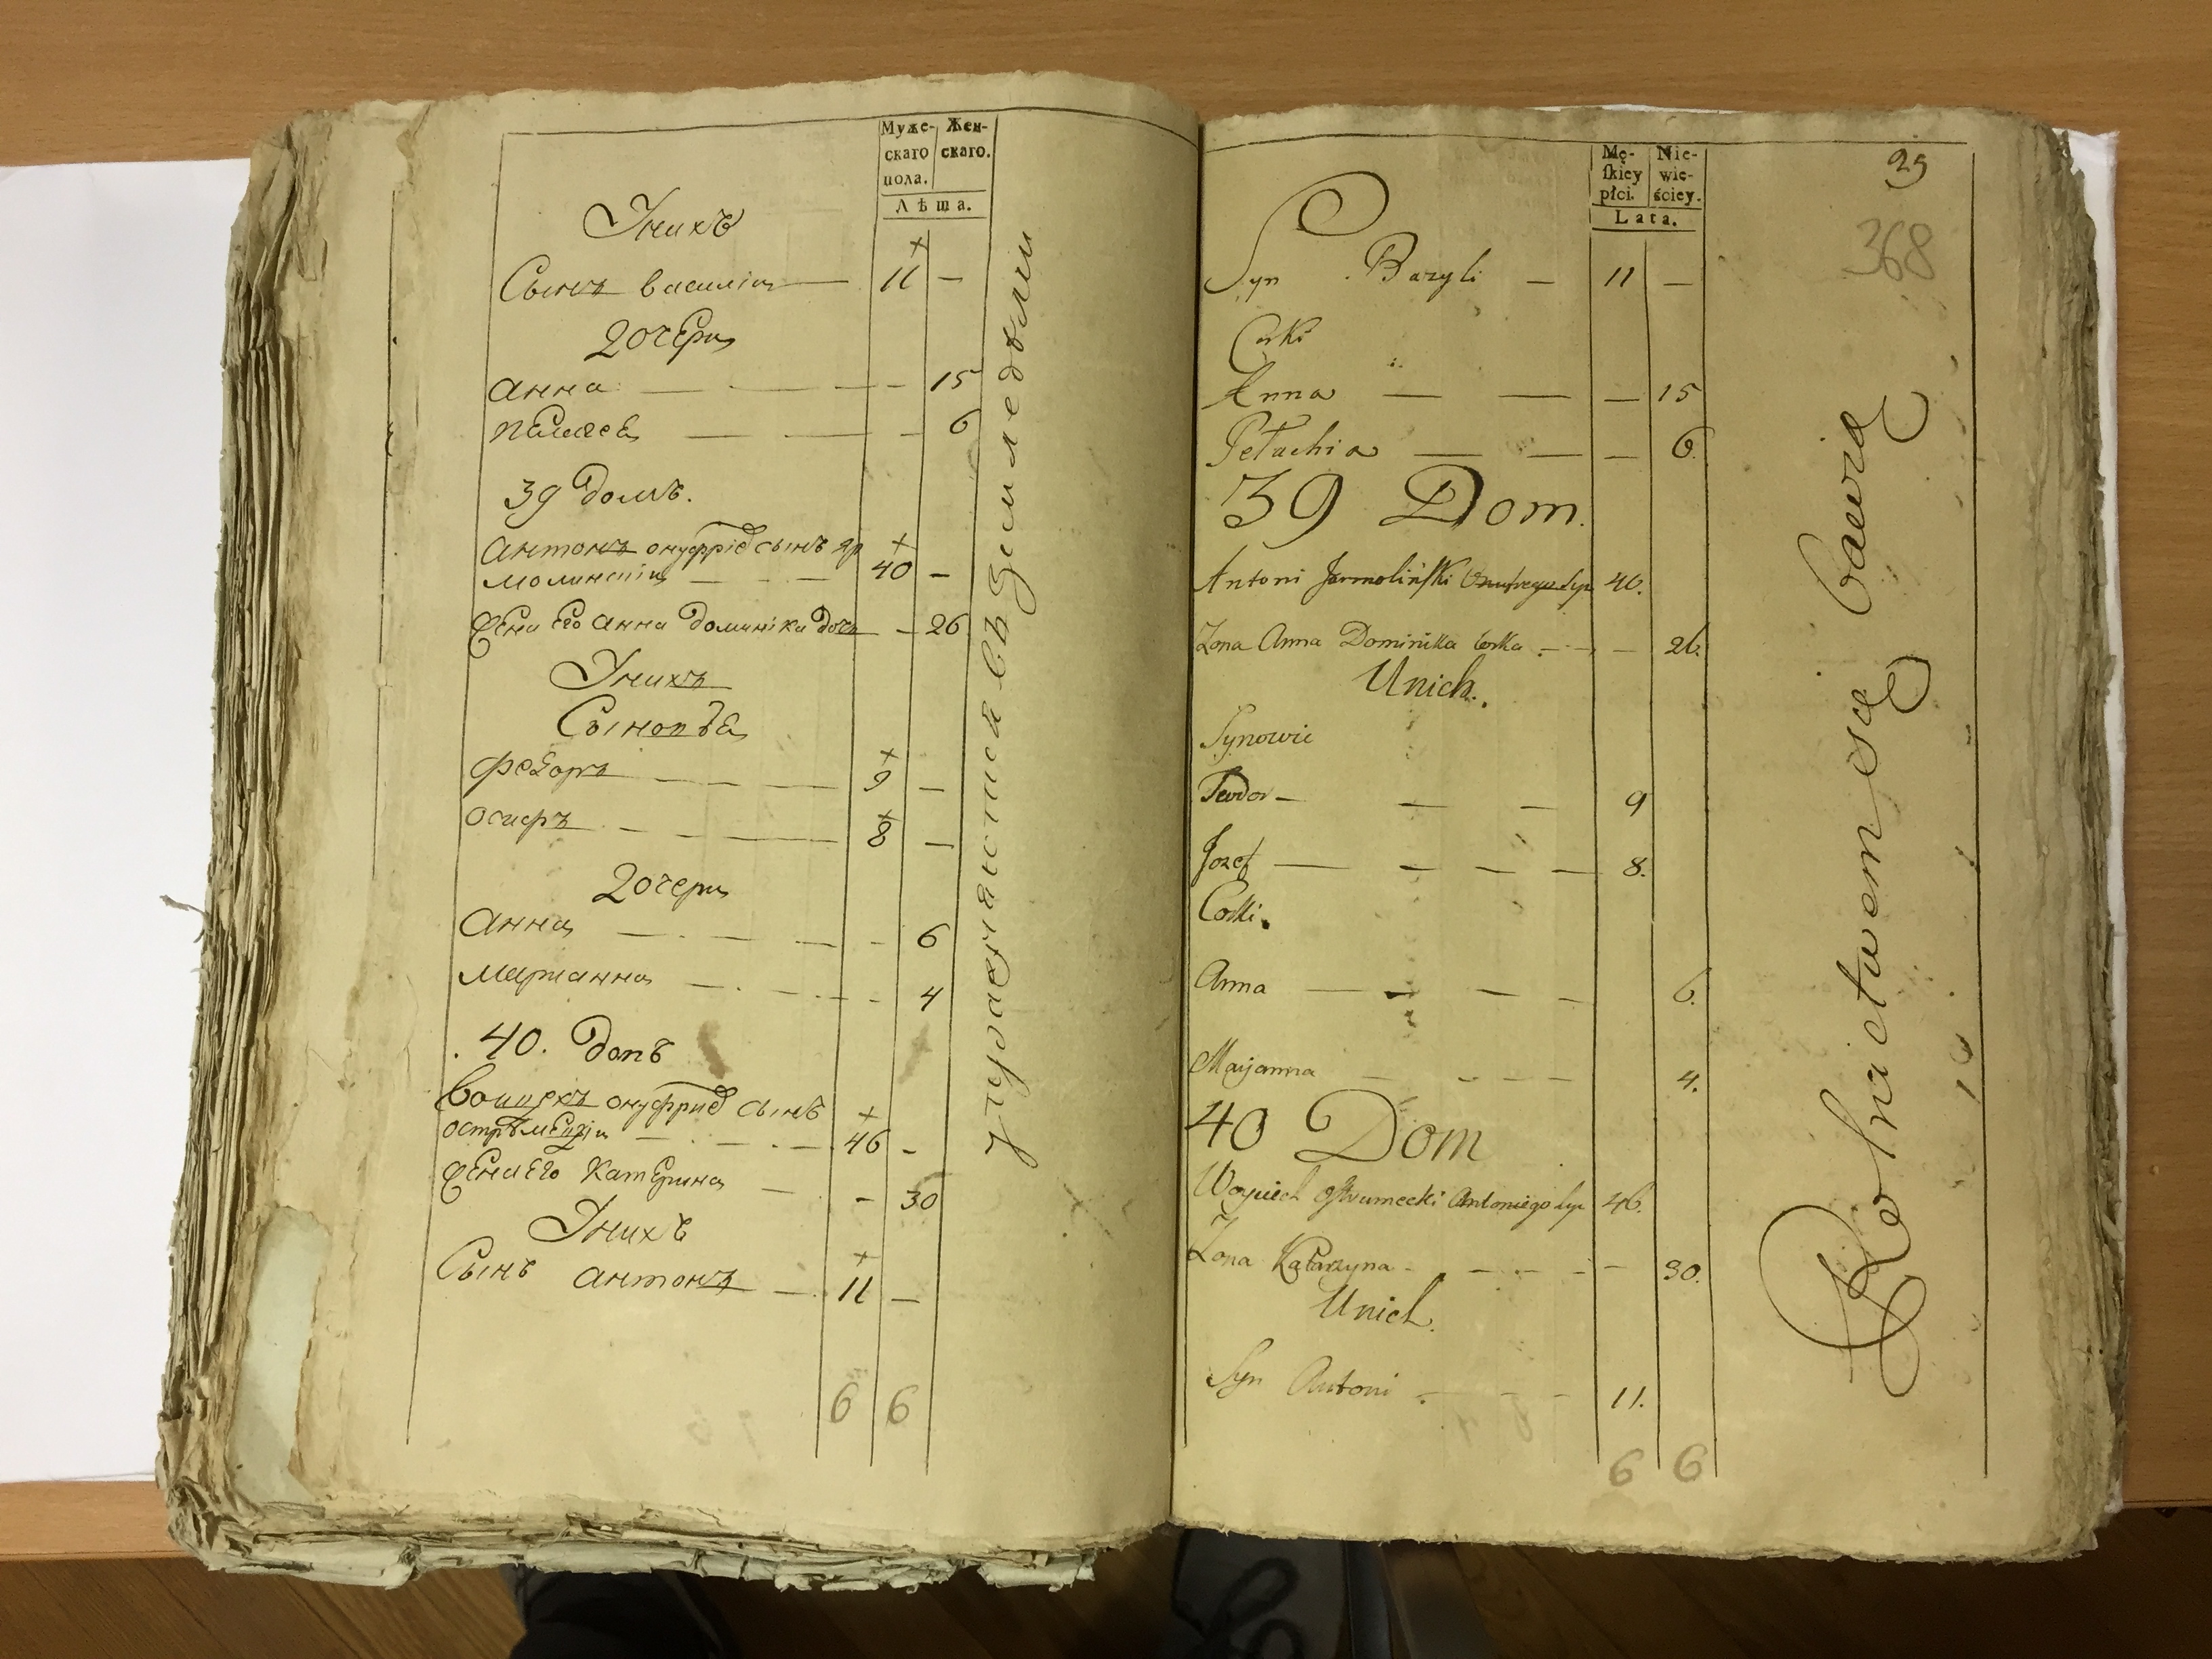 Муже- Жен-
скаго скаго.
пола.
Лѣта.
У нихъ
Сынъ василiи — 11 —
дочери
анна — — — 15
пелагея — — — 6
39 домъ.
антонъ онуфрiя сынъ яр
молинскiи — — 40 —
жена его анна доминика дочь — 26
У нихъ
Сыновья
федоръ — — 9 —
осифъ — — 8 —
дочери
анна — — — 6
марианна — — — 4
40. домъ
онуфрия сынъ
— — 46 -
жена его катерина — - 30
У нихъ
Сынъ антонъ — 11 —
6 6
упражняются въ земледелии
Mę- Nie-
ſkiey wie-
płci. ściey.
Lata.
29
368
Syn Bazyli — 11 —
Corki
Anna — — — 15
Pełachia — — — 6.
39 Dom.
Antoni Jarmoliński Onufrego Syn 40.
Zona Anna Dominika Corka — 26.
Unich.
Synowie
Teodor — — — 9
Jozef — — — — 8.
Corki.
Anna — — — — 6.
Maryanna — — — 4.
40 Dom
Woyciech Antoniego Syn 46.
Zona Katarzyna - — — 30.
Unich.
Syn Antoni — — 11.
6 6
Rolnictwem się bawią